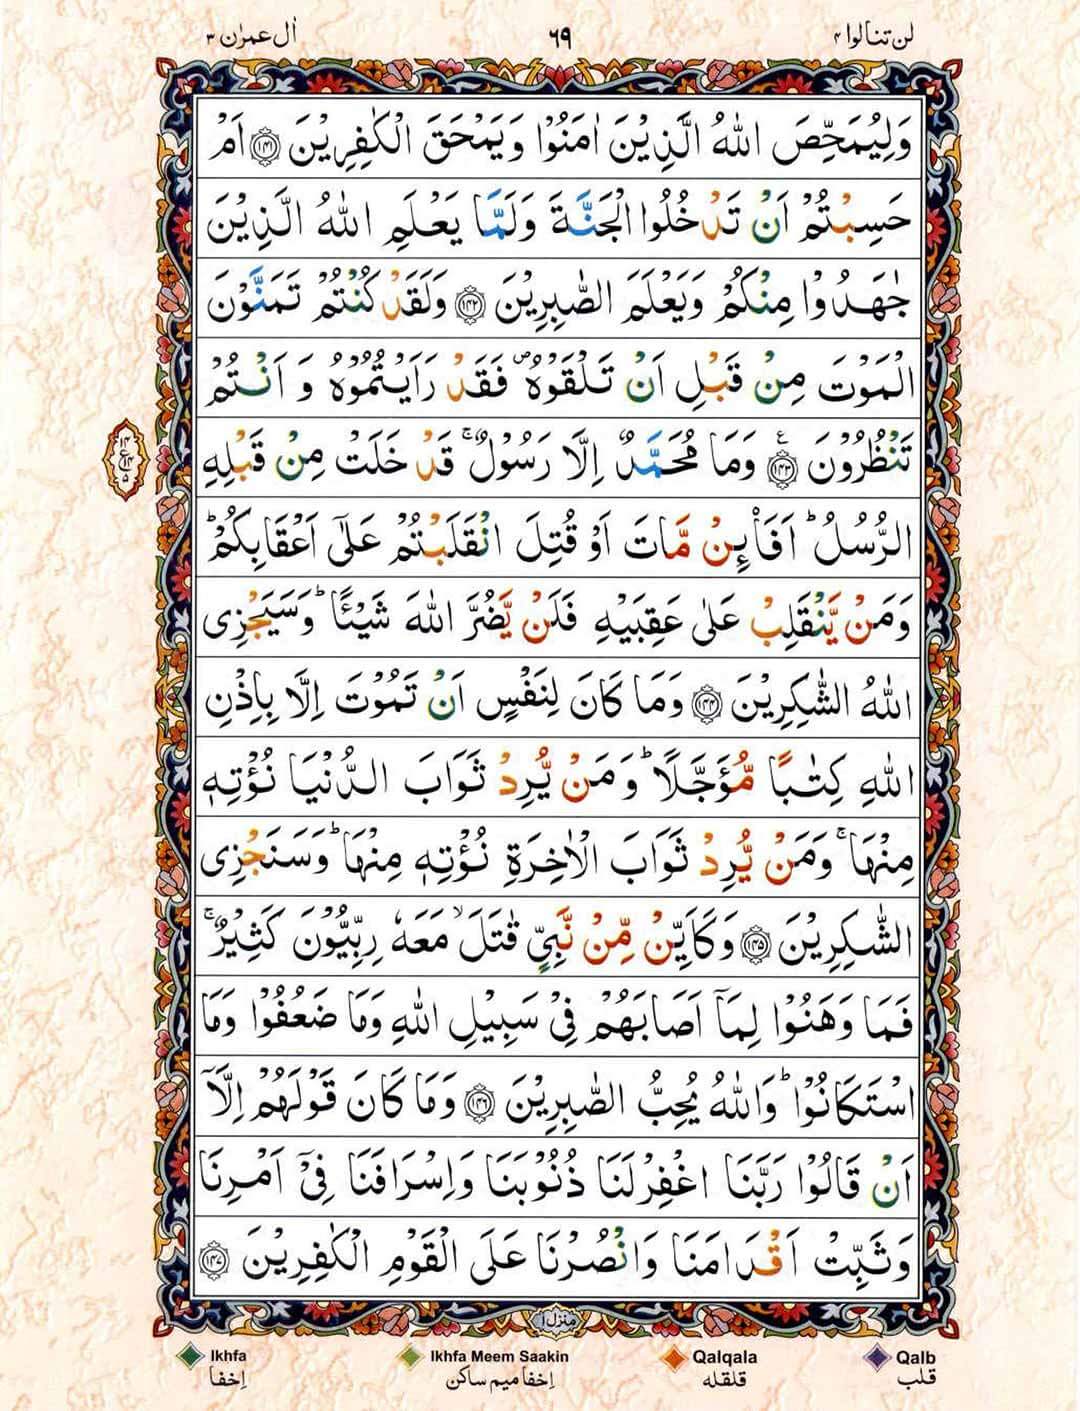 لن تنالوا ۴ ۶۹ اٰل عمرٰن ۳
وَلِيُمَحِّصَ اللّٰهُ الَّذِيْنَ اٰمَنُوْا وَيَمْحَقَ الْكٰفِرِيْنَ ﴿۱۴۱﴾ اَمْ
حَسِبْتُمْ اَنْ تَدْخُلُوا الْجَنَّةَ وَلَمَّا يَعْلَمِ اللّٰهُ الَّذِيْنَ
جٰهَدُوْا مِنْكُمْ وَيَعْلَمَ الصّٰبِرِيْنَ ﴿۱۴۲﴾ وَلَقَدْ كُنْتُمْ تَمَنَّوْنَ
الْمَوْتَ مِنْ قَبْلِ اَنْ تَلْقَوْهُ ۪ فَقَدْ رَاَيْتُمُوْهُ وَ اَنْتُمْ
تَنْظُرُوْنَ ﴿۱۴۳﴾ ع وَمَا مُحَمَّدٌ اِلَّا رَسُوْلٌ ۚ قَدْ خَلَتْ مِنْ قَبْلِهِ
۱۴ ع ۱۴ ۵
الرُّسُلُ ؕ اَفَا۠ئِنْ مَّاتَ اَوْ قُتِلَ انْقَلَبْتُمْ عَلٰٓى اَعْقَابِكُمْ ؕ
وَمَنْ يَّنْقَلِبْ عَلٰى عَقِبَيْهِ فَلَنْ يَّضُرَّ اللّٰهَ شَيْـًٔا ؕ وَسَيَجْزِى
اللّٰهُ الشّٰكِرِيْنَ ﴿۱۴۴﴾ وَمَا كَانَ لِنَفْسٍ اَنْ تَمُوْتَ اِلَّا بِاِذْنِ
اللّٰهِ كِتٰبًا مُّؤَجَّلًا ؕ وَمَنْ يُّرِدْ ثَوَابَ الدُّنْيَا نُؤْتِهٖ
مِنْهَا ۚ وَمَنْ يُّرِدْ ثَوَابَ الْاٰخِرَةِ نُؤْتِهٖ مِنْهَا ؕ وَسَنَجْزِى
الشّٰكِرِيْنَ ﴿۱۴۵﴾ وَكَاَيِّنْ مِّنْ نَّبِيٍّ قٰتَلَ ۙ مَعَهٗ رِبِّيُّوْنَ كَثِيْرٌ ۚ
فَمَا وَهَنُوْا لِمَاۤ اَصَابَهُمْ فِيْ سَبِيْلِ اللّٰهِ وَمَا ضَعُفُوْا وَمَا
اسْتَكَانُوْا ؕ وَاللّٰهُ يُحِبُّ الصّٰبِرِيْنَ ﴿۱۴۶﴾ وَمَا كَانَ قَوْلَهُمْ اِلَّاۤ
اَنْ قَالُوْا رَبَّنَا اغْفِرْ لَنَا ذُنُوْبَنَا وَاِسْرَافَنَا فِيْۤ اَمْرِنَا
وَثَبِّتْ اَقْدَامَنَا وَانْصُرْنَا عَلَى الْقَوْمِ الْكٰفِرِيْنَ ﴿۱۴۷﴾
منزل ۱
Ikhfa Ikhfa Meem Saakin Qalqala Qalb
اِخفا اِخفا میم ساکن قلقله قلب